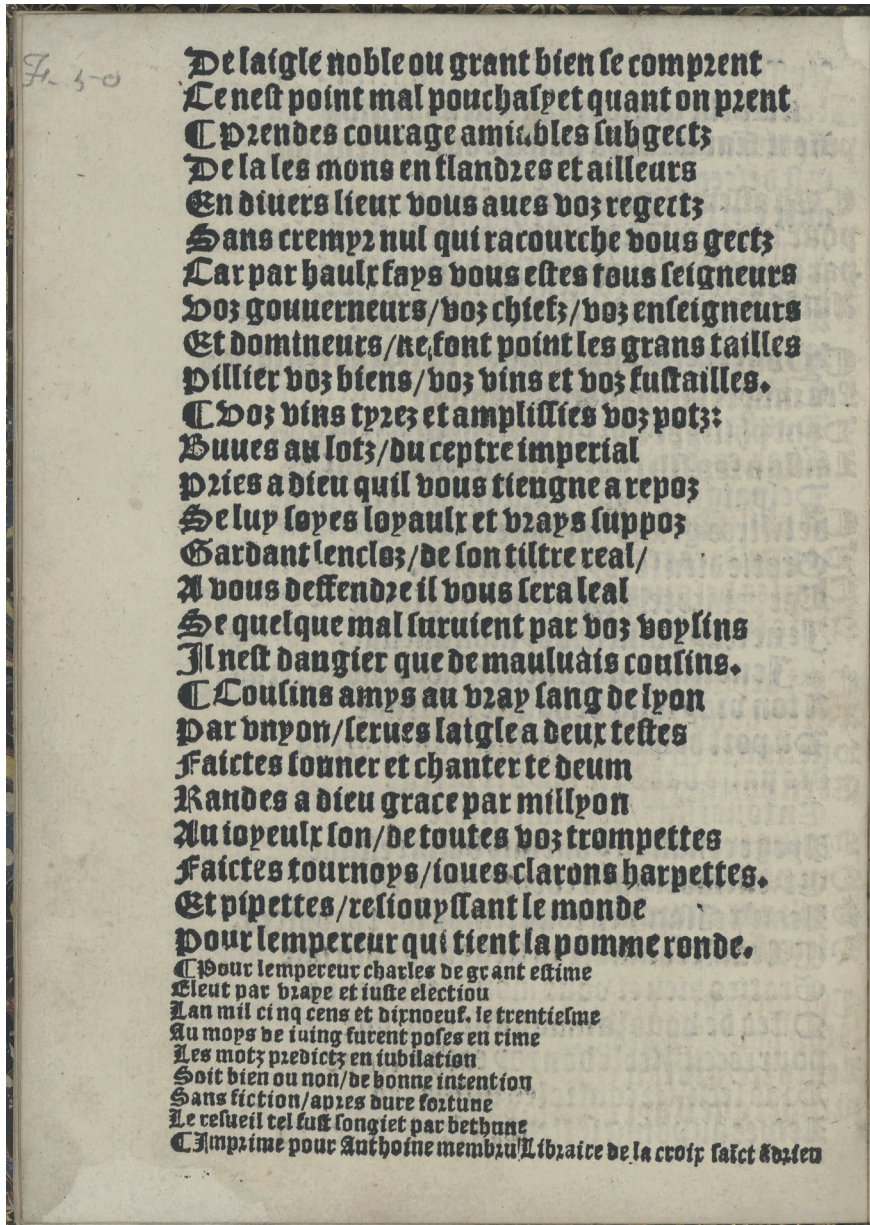 De laigle noble ou grant bien se comprent
Ce nest point mal pouchasyet quant on prent
¶ Prendes courage amiables subgectz
De la les mons en flandres et ailleurs
En diuers lieux vous aues voz regectz
Sans cremyr nul qui racourche vous gectz
Car par haulx fays vous estes tous seigneurs
Voz gouuerneurs/voz chiefz/voz enseigneurs
Et domineurs/ne font point les grans tailles
Pillier voz biens/voz vins et voz fustailles.
¶ Voz vins tyrez et amplissies voz potz:
Buues au lotz/du ceptre imperial
Pries a dieu quil vous tiengne a repoz
Se luy soyes loyaulx et vrays suppoz
Gardant lencloz/de son tiltre real/
A vous deffendre il vous sera leal
Se quelque mal suruient par voz voysins
Il nest dangier que de mauluais cousins.
¶ Cousins amys au vray sang de lyon
Par vnyon/serues laigle a deux testes
Faictes sonner et chanter te deum
Randes a dieu grace par millyon
Au ioyeulx son/de toutes voz trompettes
Faictes tournoys/ioues clarons harpettes.
Et pipettes/resiouyssant le monde
Pour lempereur qui tient la pomme ronde.
¶ Pour lempereur charles de grant estime
Eleut par vraye et iuste electiou
Lan mil cinq cens et dixnoeuf. le trentiesme
Au moys de iuing furent poses en rime
Les motz predictz en iubilation
Soit bien ou non/de bonne intention
Sans fiction/apres dure fortune
Le resueil tel fust songiet par bethune
¶ Imprime pour Anthoine membru Libraire de la croix saict Adrieu